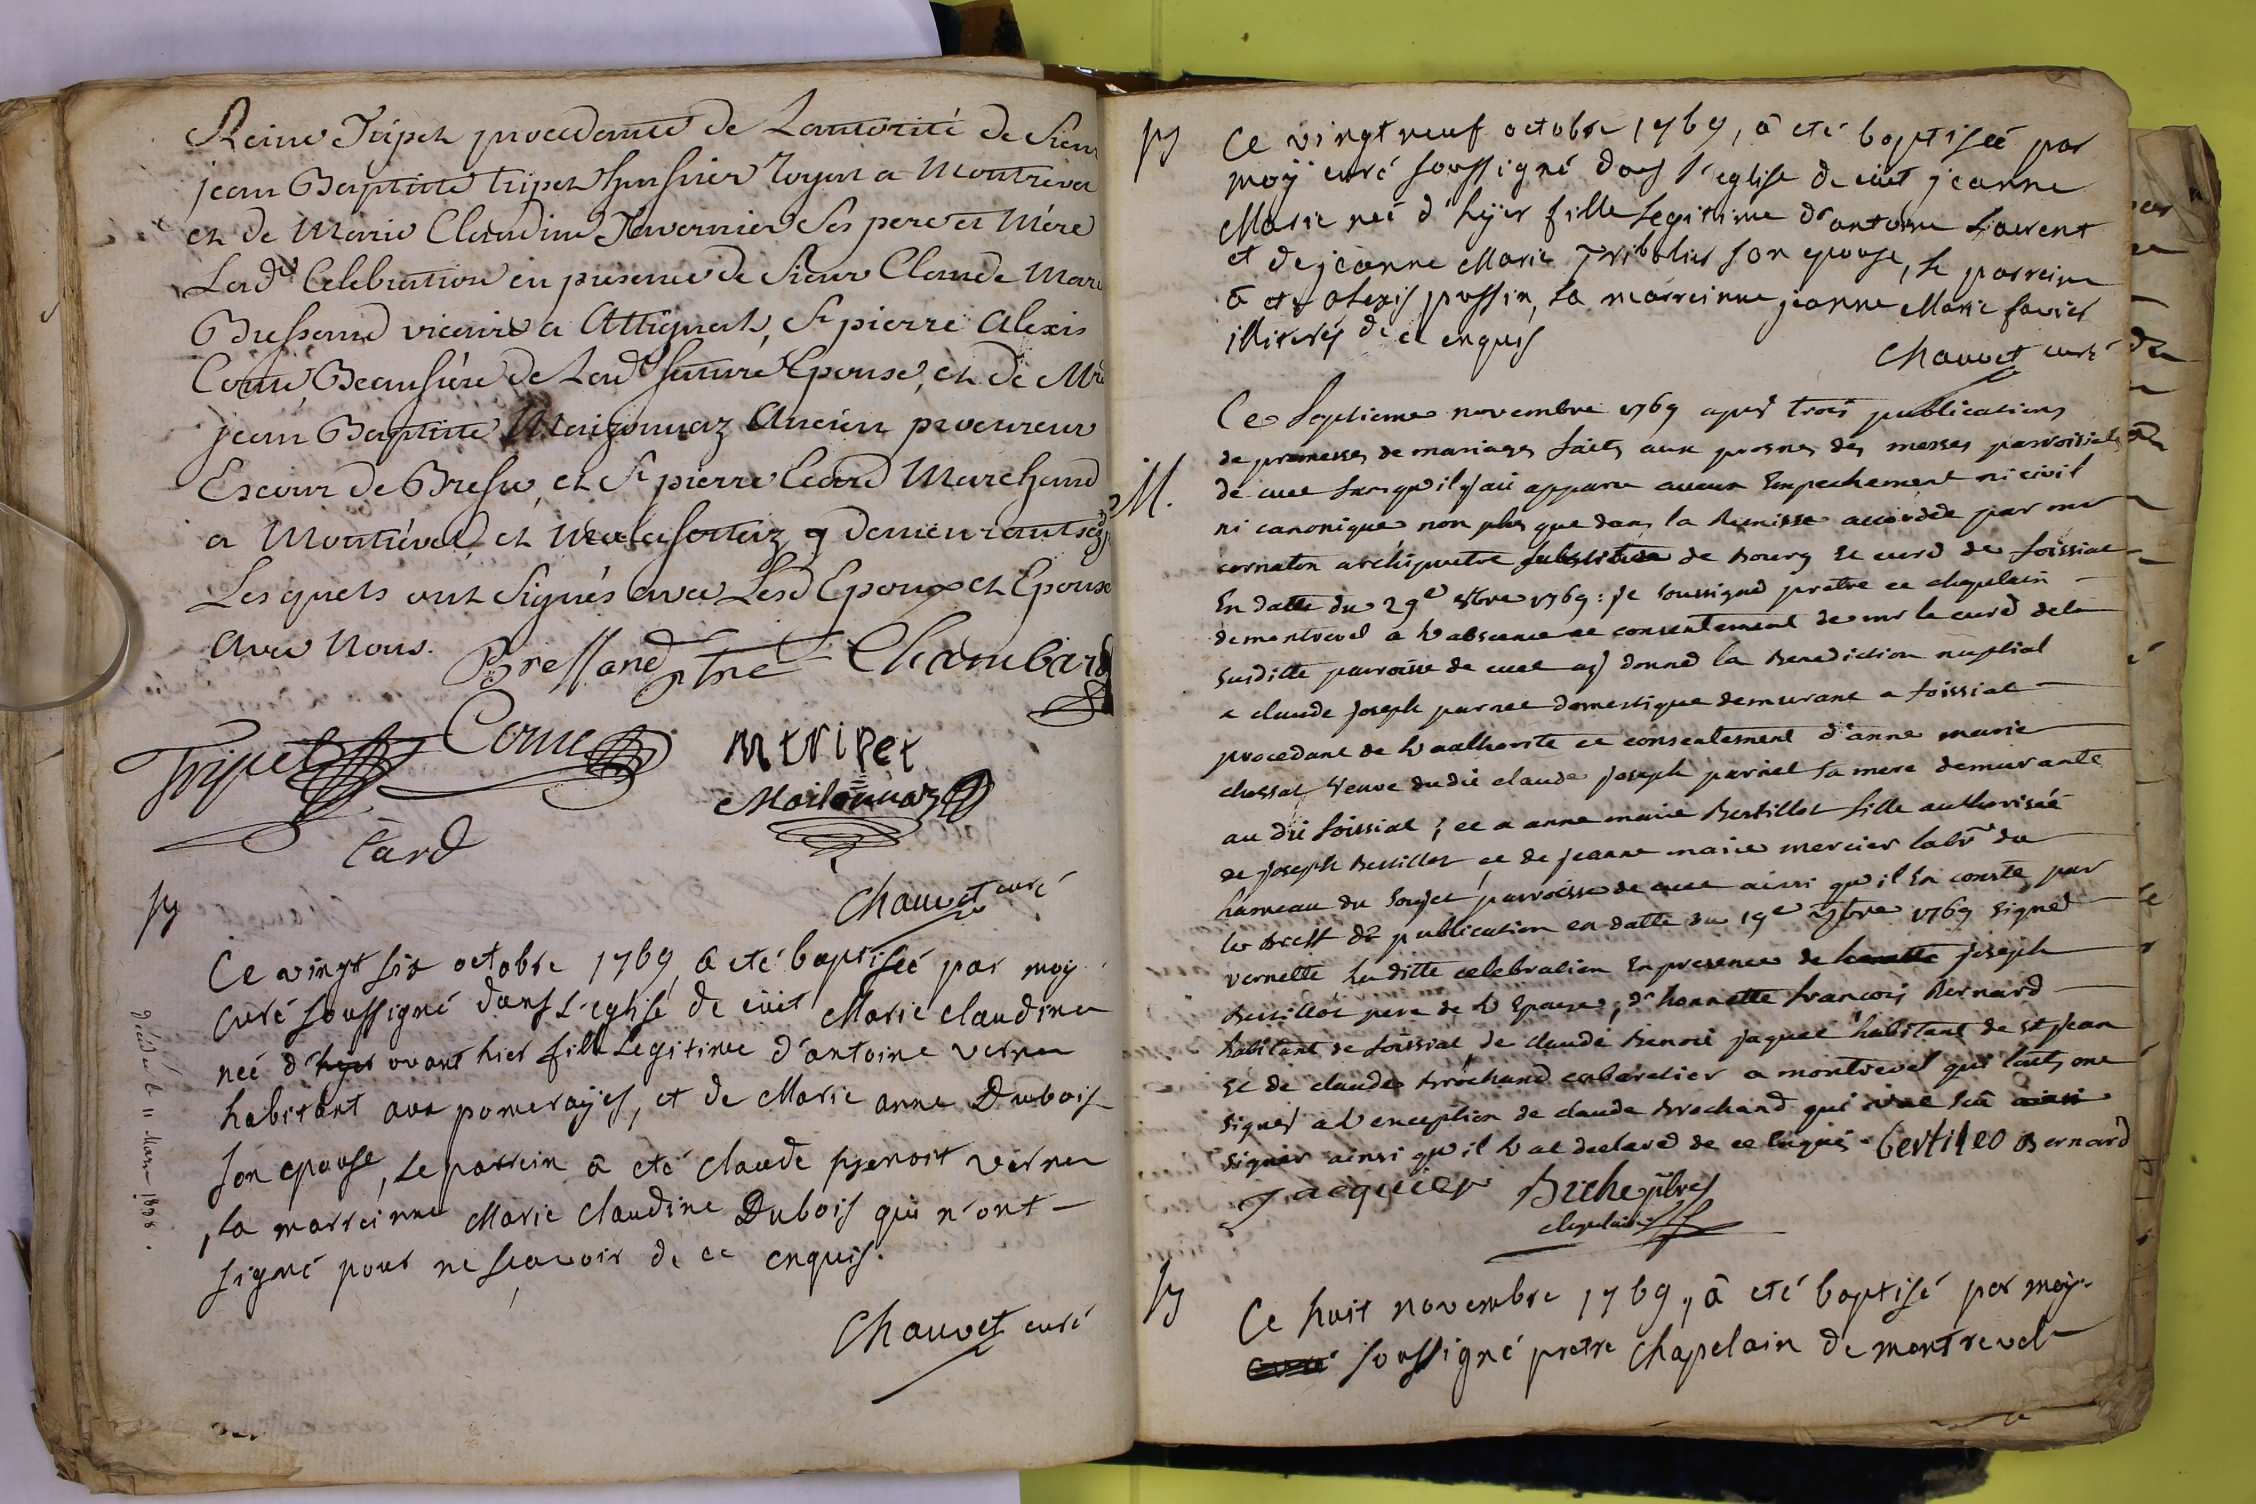 Reine Tripet procedante de Lautorité de Sieur
jean Baptiste tripet huissier Royal a Montrevel
et de Marie Claudine Tavernier Ses pere et Mère
Lad.e Celebration en presence de Sieur Claude Marie
Bressand vicaire a Attignat, Sr pierre Alexis
Come, Beaufrère de Lad.e future Epouse, et de Mre
jean Baptiste Maizonnaz Ancien procureur
Es cour de Bresse, et Sr pierre Eard Marchand
a Montrével, et
Lesquels ont Signés avec Lesd Epoux et Epouse
Avec Nous.
Bressand ptre Chambard
Tripet Come M tripet
Maisonnaz
Card
Chauvet curé
Ce vingt six octobre 1769, a eté baptiseé par moy
curé soussigné dans L'eglise de cüet Marie claudine
neé d'hyer avant hier fille Legitime d'antoine verne
habitant aux pomerayes, et de Marie anne Dubois
son epouse, Le parrein â eté claude benoit verne
la marreinne Marie claudine Dubois qui n'ont
signé pour ne sçavoir de ce enquis.
Chauvet curé
décédé le 11 Mars
Ce vingt neuf octobre 1769, â eté baptiseé par
moy curé soussigné dans l'eglise de cüet jeanne
Marie neé d'hÿer fille Legitime d'antoine Laurent
et de jeanne Marie Tribolier son epouse, le parreine
â eté alexis pussin, la marreinne jeanne Marie favier
illiterés de ce enquis
Chauvet curé
M.
Ce Septieme novembre 1769 apres trois publications
de promesses de mariages faits aux prosnes des messes parroisiales
de cuet sans qu'il y ait apparu aucun Empechement ni civil
ni canonique non plus que dans la Remisse accordée par mr
cornaton archiprêtre de Bourg et curé de foissiat
En datte du 29e 8bre 1769: je soussigné pretre et chapelain
de montrevel a l'absence et consentement de mr le curé de la
susditte parroisse de cuet ay donné la Benediction nuptial
a claude joseph parnet domestique demurant a foissiat
procedant de l'authorité et consentement d'anne marie
chossat veuve dudit claude joseph parnet sa mere demurante
au dit foissiat; et a anne marie Bertillot fille authorisée
de joseph Bertillot et de jeanne marie mercier labr du
hameau du Souget parroisse de cuet ainsi qu'il En conste par
le de publication en datte du 19e 1769 signé
vernette la ditte celebration En presence de joseph
Bertillot pere de l'Epouse; d'honnette francois Bernard
habitant de foissiat, de claude Benoit jaquet habitant de St jean
et de claude Brochand cabaretier a montrevel qui touts ont
signés a l'exception de claude Brochand qui
signer ainsi qu'il l'at declaré de ce Enquis - Bertileo Bernard
Jacquier Buche ptre
chapelain
Ce huit novembre 1769, â eté baptisé par moy
curé soussigné pretre chapelain de montrevel